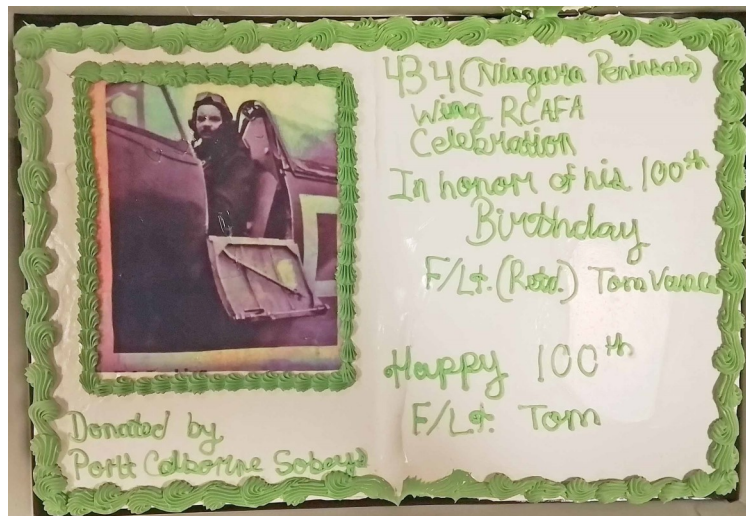 434 (Niagara Peninsula)
Wing RCAFA
Celebration
In honor of his 100th
Birthday
F/Lt. (Retd.) Tom Vance
Happy 100th
F/Lt. Tom
Donated by
Port Colborne Sobeys